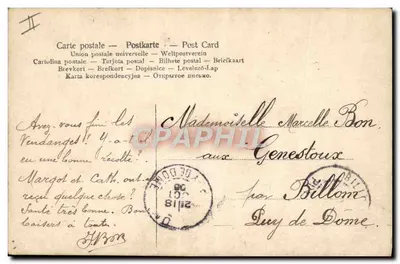 II
Carte postale — Postkarte — Post Card
Union postale universelle — Weltpostverein
Cartolina postale — Tarjeta postal — Bilhete postal — Briefkaart
Brevkort — Brefkort — Dopisnice — Levelező-Lap
Karta korespondencyjna — Открытое письмо.
Avez-vous fini les
Vendanges! Y a-t-il
eu une bonne récolte!
Margot et Cath. ont
reçu quelque chose?
Santé très bonne. Bons
baisers à toute.
JBon
Mademoiselle Marcelle Bon
aux Genestoux
par Billom
Puy de Dome
CPAPHIL
PUY DE DOME
BILLOM